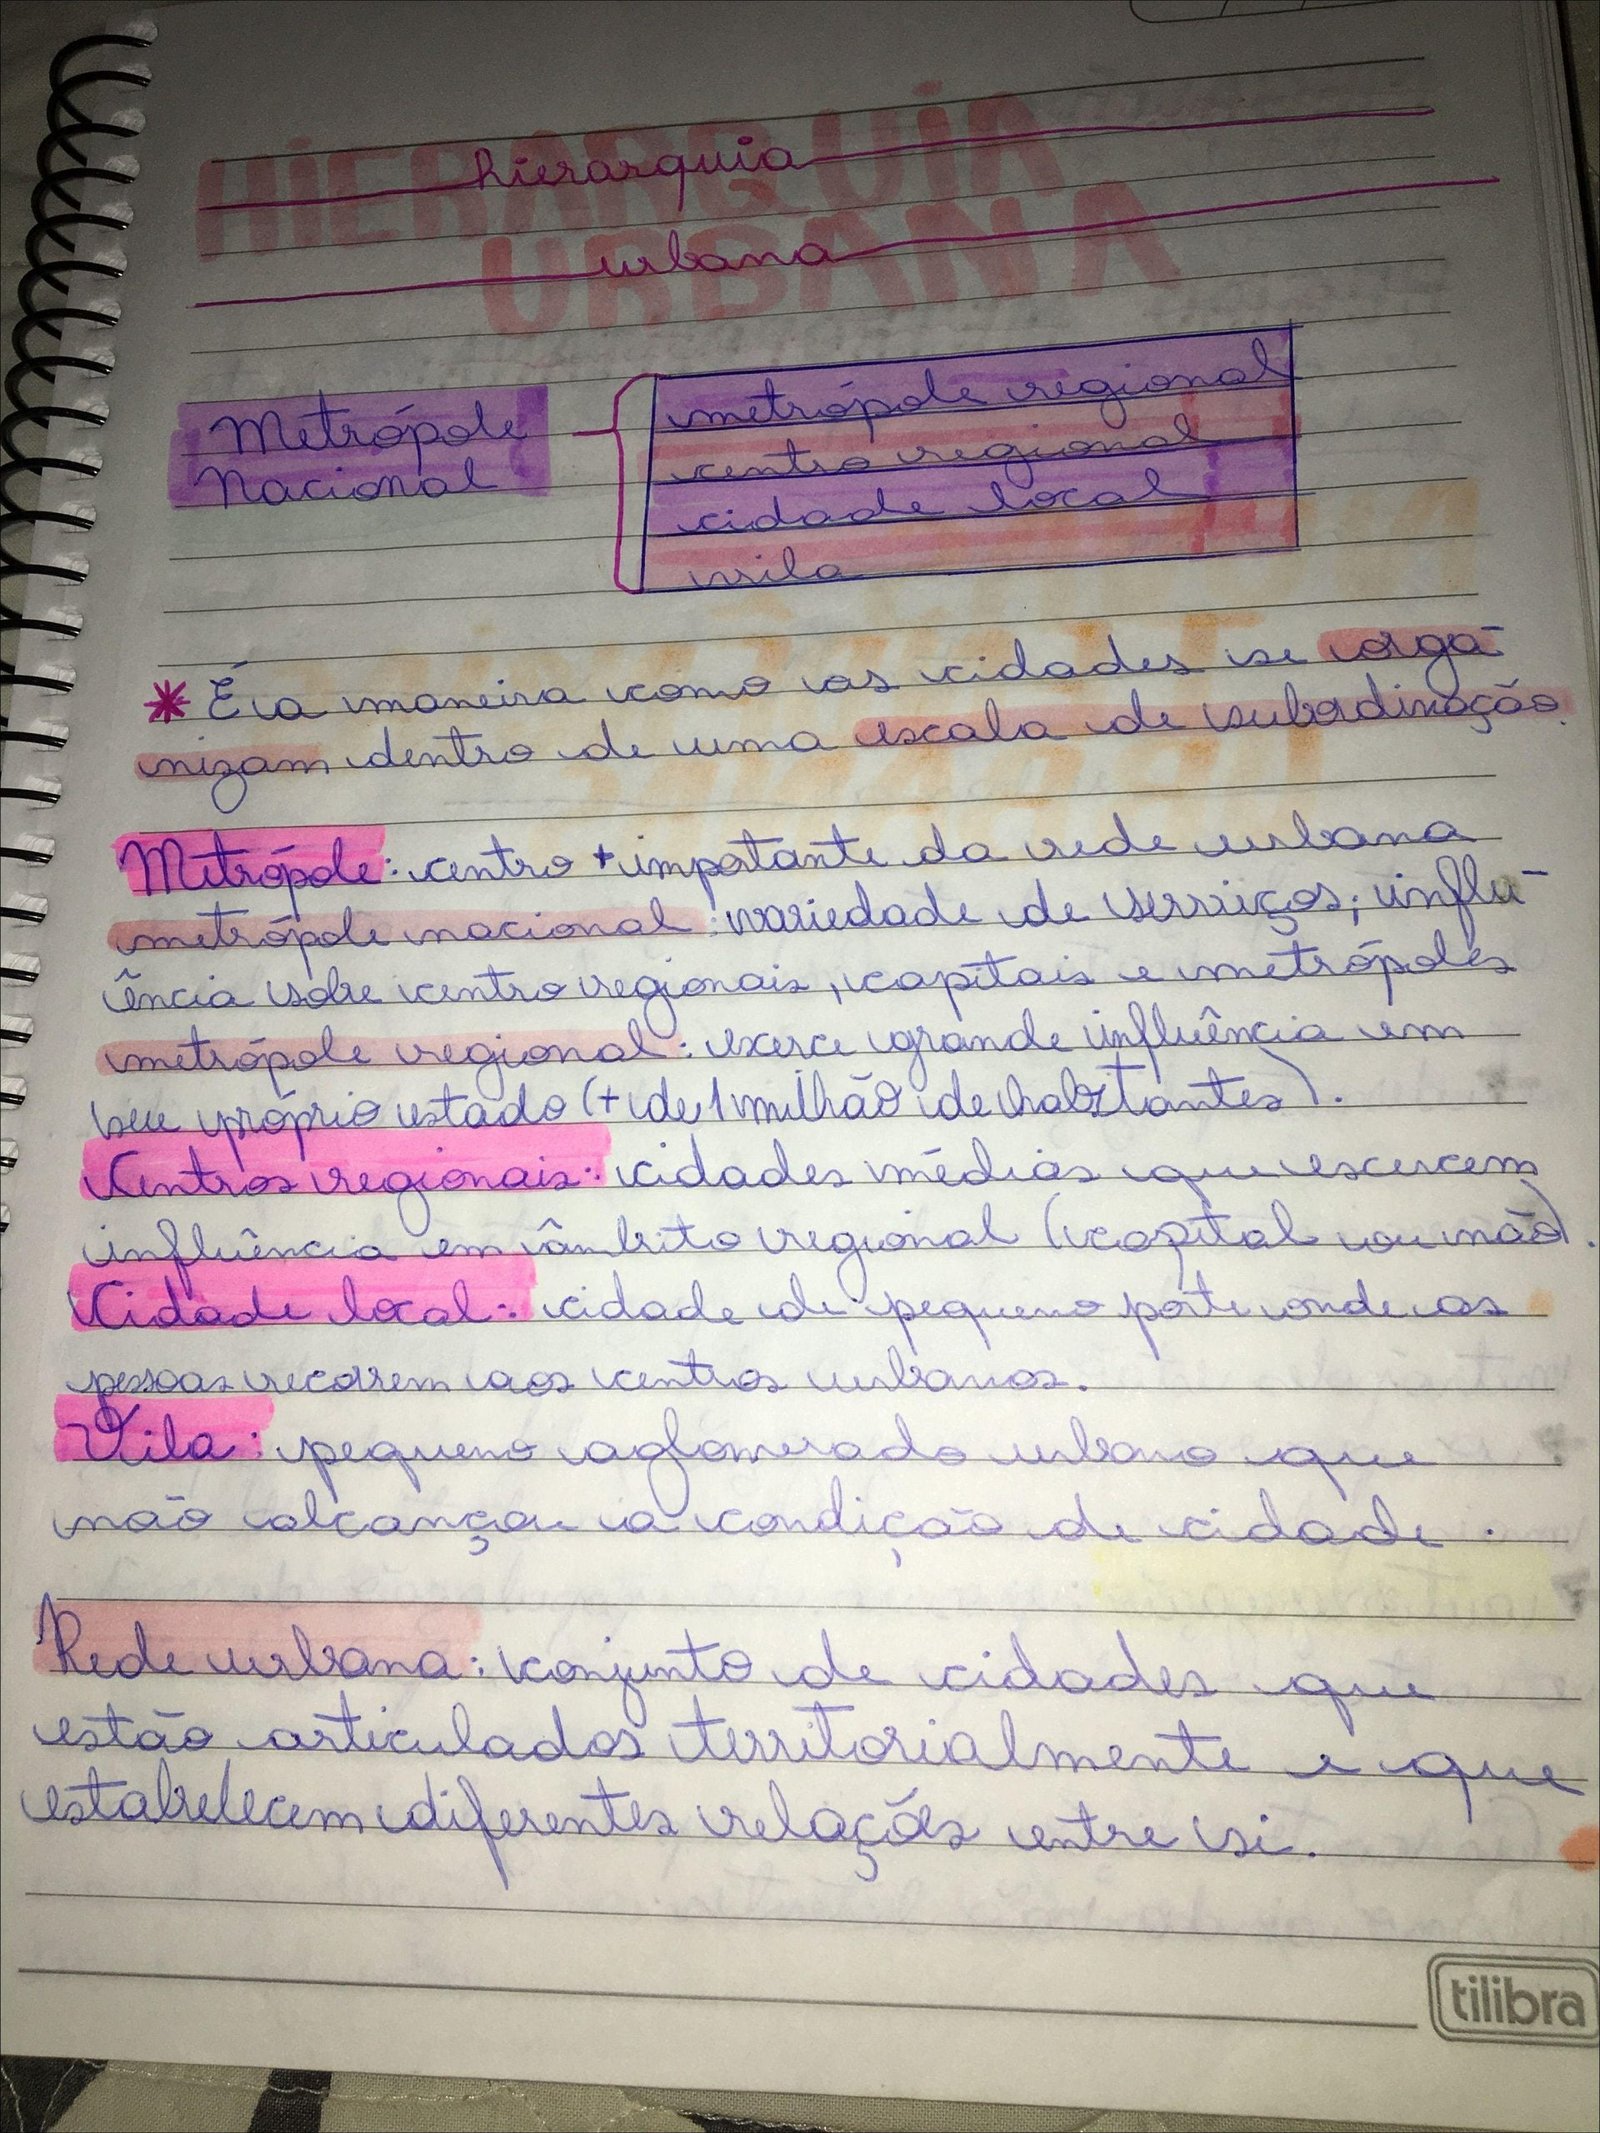 HIERARQUIA
URBANA
hierarquia
urbana
Metrópole
Nacional
metrópole regional
centro regional
cidade local
vila
* É a maneira como as cidades se orga-
nizam dentro de uma escala de subordinação.
Metrópole: centro + importante da rede urbana
metrópole nacional: variedade de serviços; influ-
ência sobre centro regionais, capitais e metrópoles
metrópole regional: exerce grande influência em
seu próprio estado (+ de 1 milhão de habitantes).
Centros regionais: cidades médias que escercem
influência em âmbito regional (capital ou não).
Cidade local: cidade de pequeno porte onde as
pessoas recorrem aos centros urbanos.
Vila: pequeno aglomerado urbano que
não alcançou a condição de cidade.
Rede urbana: conjunto de cidades que
estão articulados territorialmente e que
estabelecem diferentes relações entre si.
tilibra